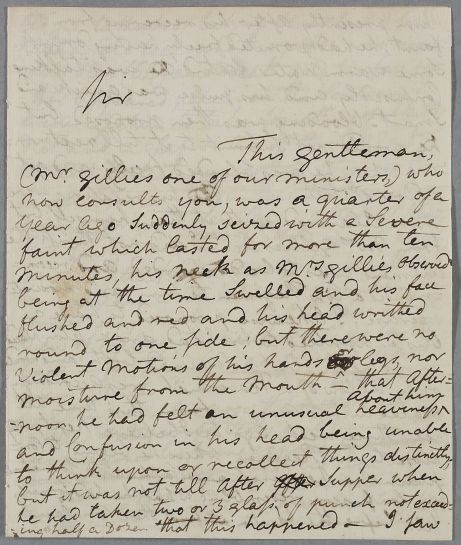 Sir
This gentleman,
(Mr. Gillies one of our ministers,) who
now consults you, was a quarter of a
Year ago Suddenly seized with a Severe
faint which lasted for more than ten
minutes, his neck as Mrs Gillies observed
being at the time Swelled and his face
flushed and red and his head writhed
round to one side; but there were no
Violent Motions of his hands legs, nor
moisture from the Mouth – that After-
About him
-noon, he had felt an unusual heaviness ^
and Confusion in his head being unable
to think upon or recollect things distinctly,
but it was not till after Supper when
he had taken two or 3 glass. of punch not exceed-
-ing half a Dozen that this happened – I saw